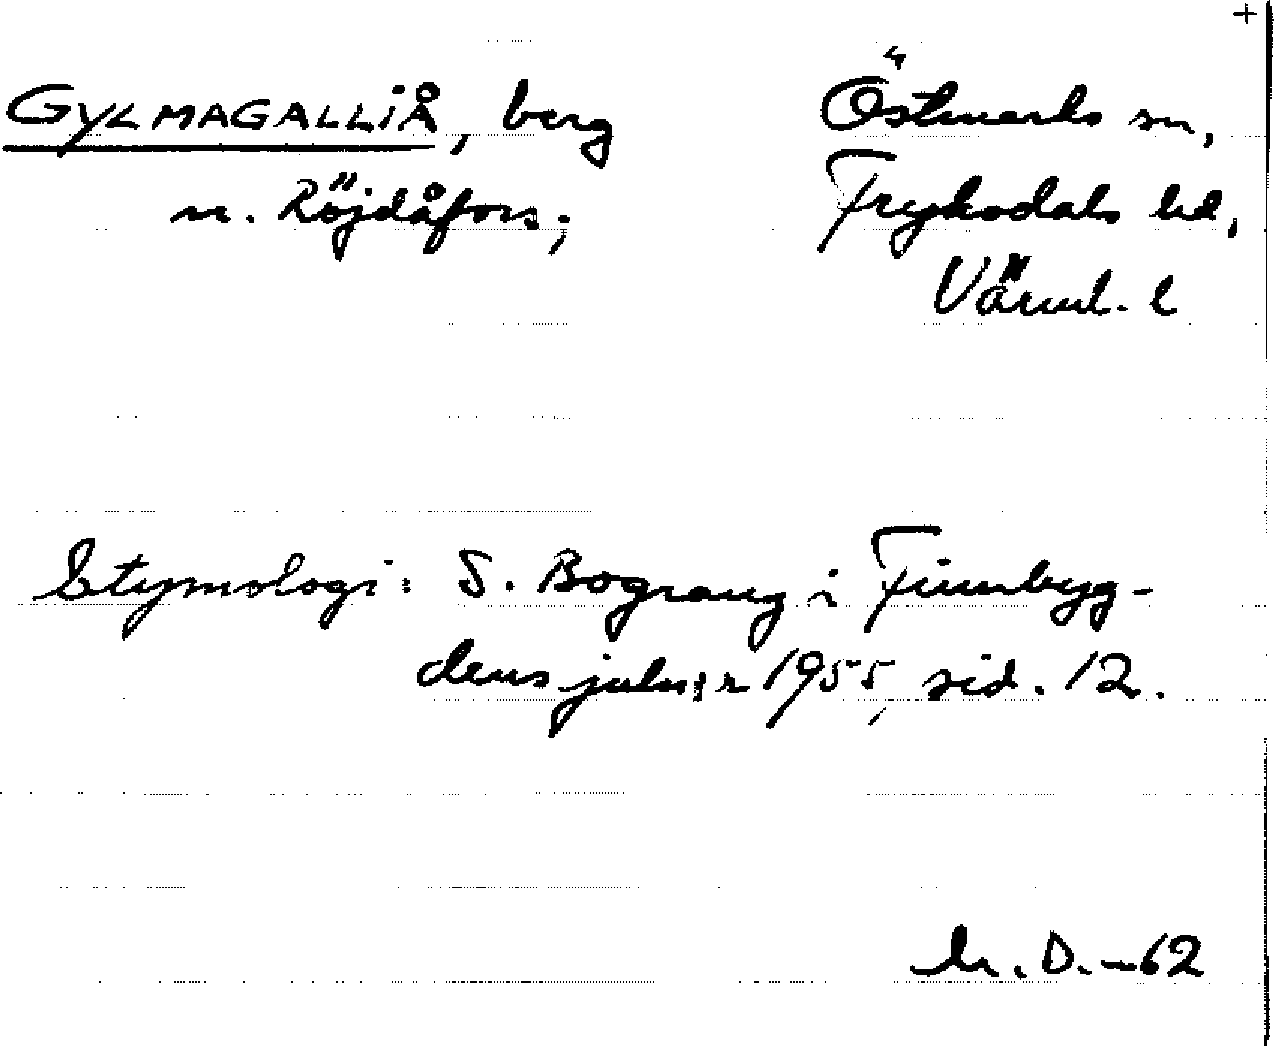 +
GYLMAGALLIÅ, berg Östmarks sn,
n. Röjdåfors; Fryksdals hd,
Värml. l
Etymologi: S. Bograng i Finnbyg-
dens julnr 1955, sid. 12.
D. -62